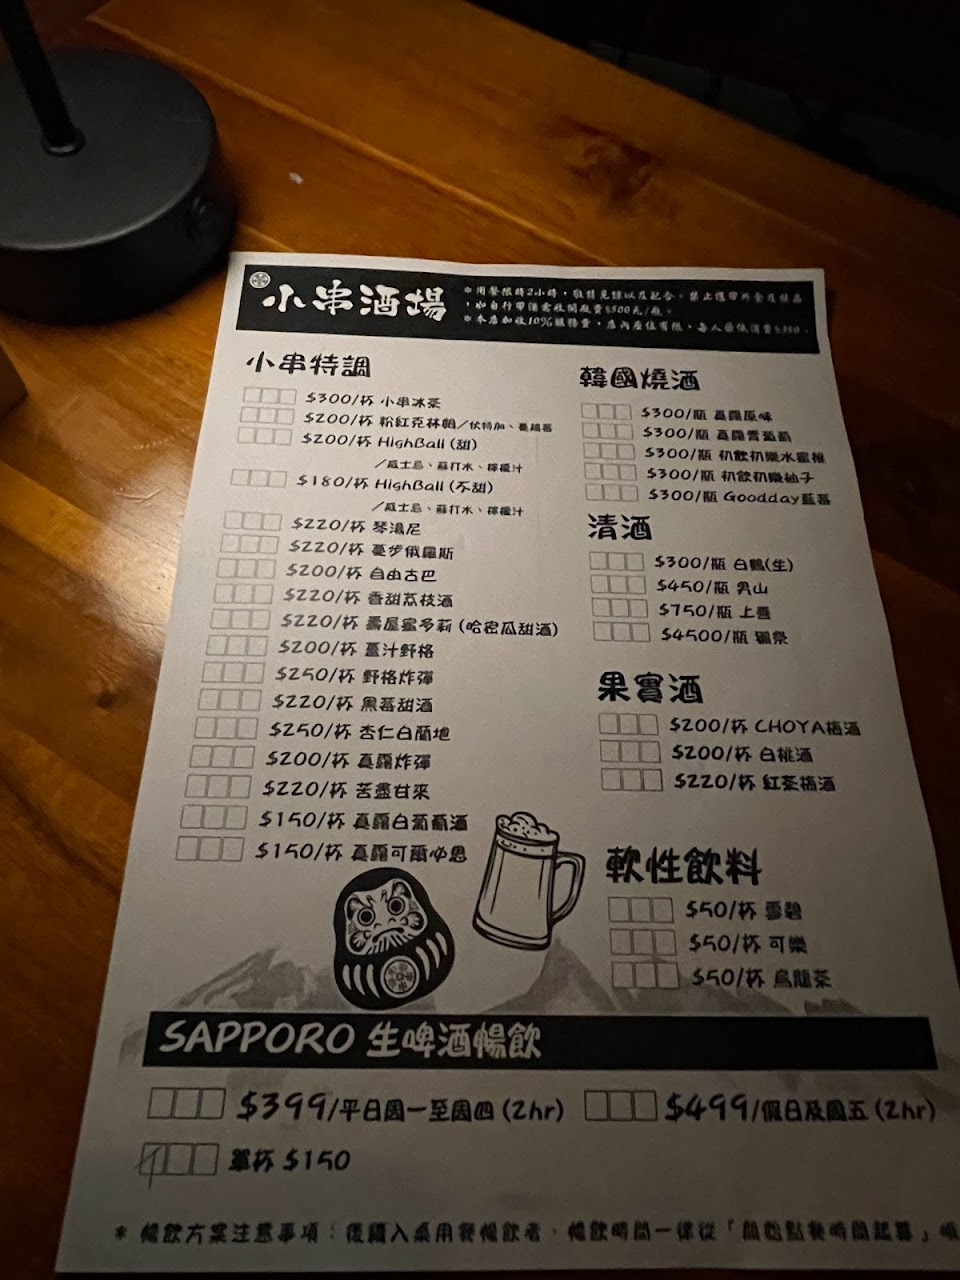 小串酒場
*用餐限時2小時,敬請見諒以及配合。禁止攜帶外食及酒品
,如自行帶酒需收開瓶費$500元/瓶。
*本店加收10%服務費,店內座位有限,每人最低消費$350。
小串特調
$300/杯 小串冰茶
$200/杯 粉紅克林姆/伏特加、蔓越莓
$200/杯 HighBall (甜)
/威士忌、蘇打水、檸檬汁
$180/杯 HighBall (不甜)
/威士忌、蘇打水、檸檬汁
$220/杯 琴湯尼
$220/杯 憂步俄羅斯
$200/杯 自由古巴
$220/杯 香甜荔枝酒
$220/杯 壽屋蜜多莉 (哈密瓜甜酒)
$200/杯 薑汁野格
$250/杯 野格炸彈
$220/杯 黑莓甜酒
$250/杯 杏仁白蘭地
$200/杯 真露炸彈
$220/杯 苦盡甘來
$150/杯 真露白葡萄酒
$150/杯 真露可爾必思
韓國燒酒
$300/瓶 真露原味
$300/瓶 真露青葡萄
$300/瓶 初飲初樂水蜜桃
$300/瓶 初飲初樂柚子
$300/瓶 Goodday藍莓
清酒
$300/瓶 白鶴(生)
$450/瓶 男山
$750/瓶 上善
$4500/瓶 獺祭
果實酒
$200/杯 CHOYA梅酒
$200/杯 白桃酒
$220/杯 紅茶梅酒
軟性飲料
$50/杯 雪碧
$50/杯 可樂
$50/杯 烏龍茶
SAPPORO 生啤酒暢飲
$399/平日週一至週四 (2hr)
$499/假日及週五 (2hr)
單杯 $150
* 暢飲方案注意事項:後續入桌用餐暢飲者,暢飲時間一樣從「開始點餐時間起算」